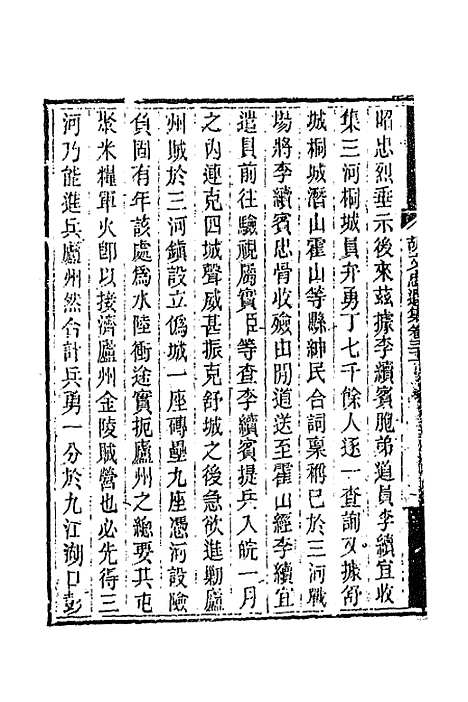 昭忠烈垂示後來茲據李續賓胞弟道員李續宜收
集三河桐城員弁勇丁七千餘人逐一查詢又據舒
城桐城潛山霍山等縣紳民合詞稟稱已於三河戰
場將李續賓忠骨收殮由間道送至霍山經李續宜
遣員前往驗視屬實臣等查李續賓提兵入皖一月
之內連克四城聲威甚振克舒城之後急欲進勦廬
州賊於三河鎮設立僞城一座磚壘九座憑河設險
負固有年該處爲水陸衝途實扼廬州之總要其屯
聚米糧軍火卽以接濟廬州金陵賊營也必先得三
河乃能進兵廬州然合計兵勇一分於九江湖口彭